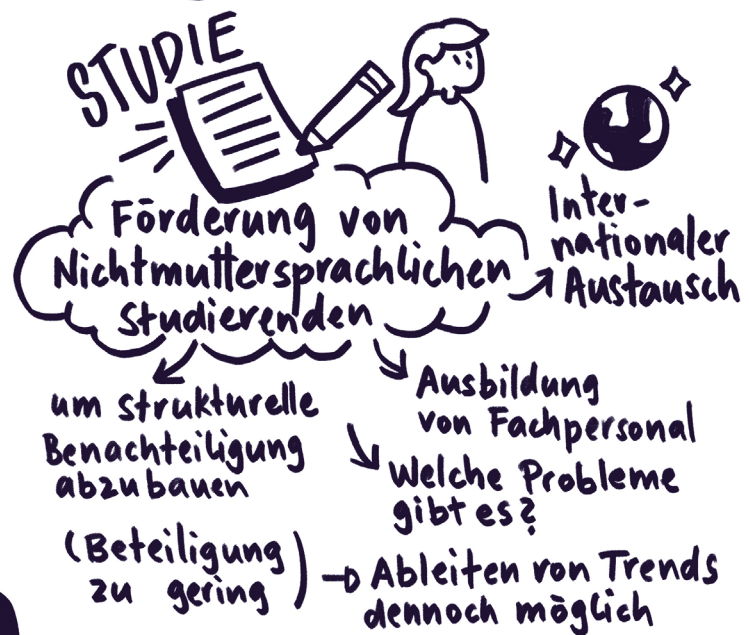 STUDIE
Förderung von
Nichtmuttersprachlichen
Studierenden
Inter-
nationaler
Austausch
um strukturelle
Benachteiligung
abzubauen
Ausbildung
von Fachpersonal
Welche Probleme
gibt es?
(Beteiligung
zu gering)
Ableiten von Trends
dennoch möglich